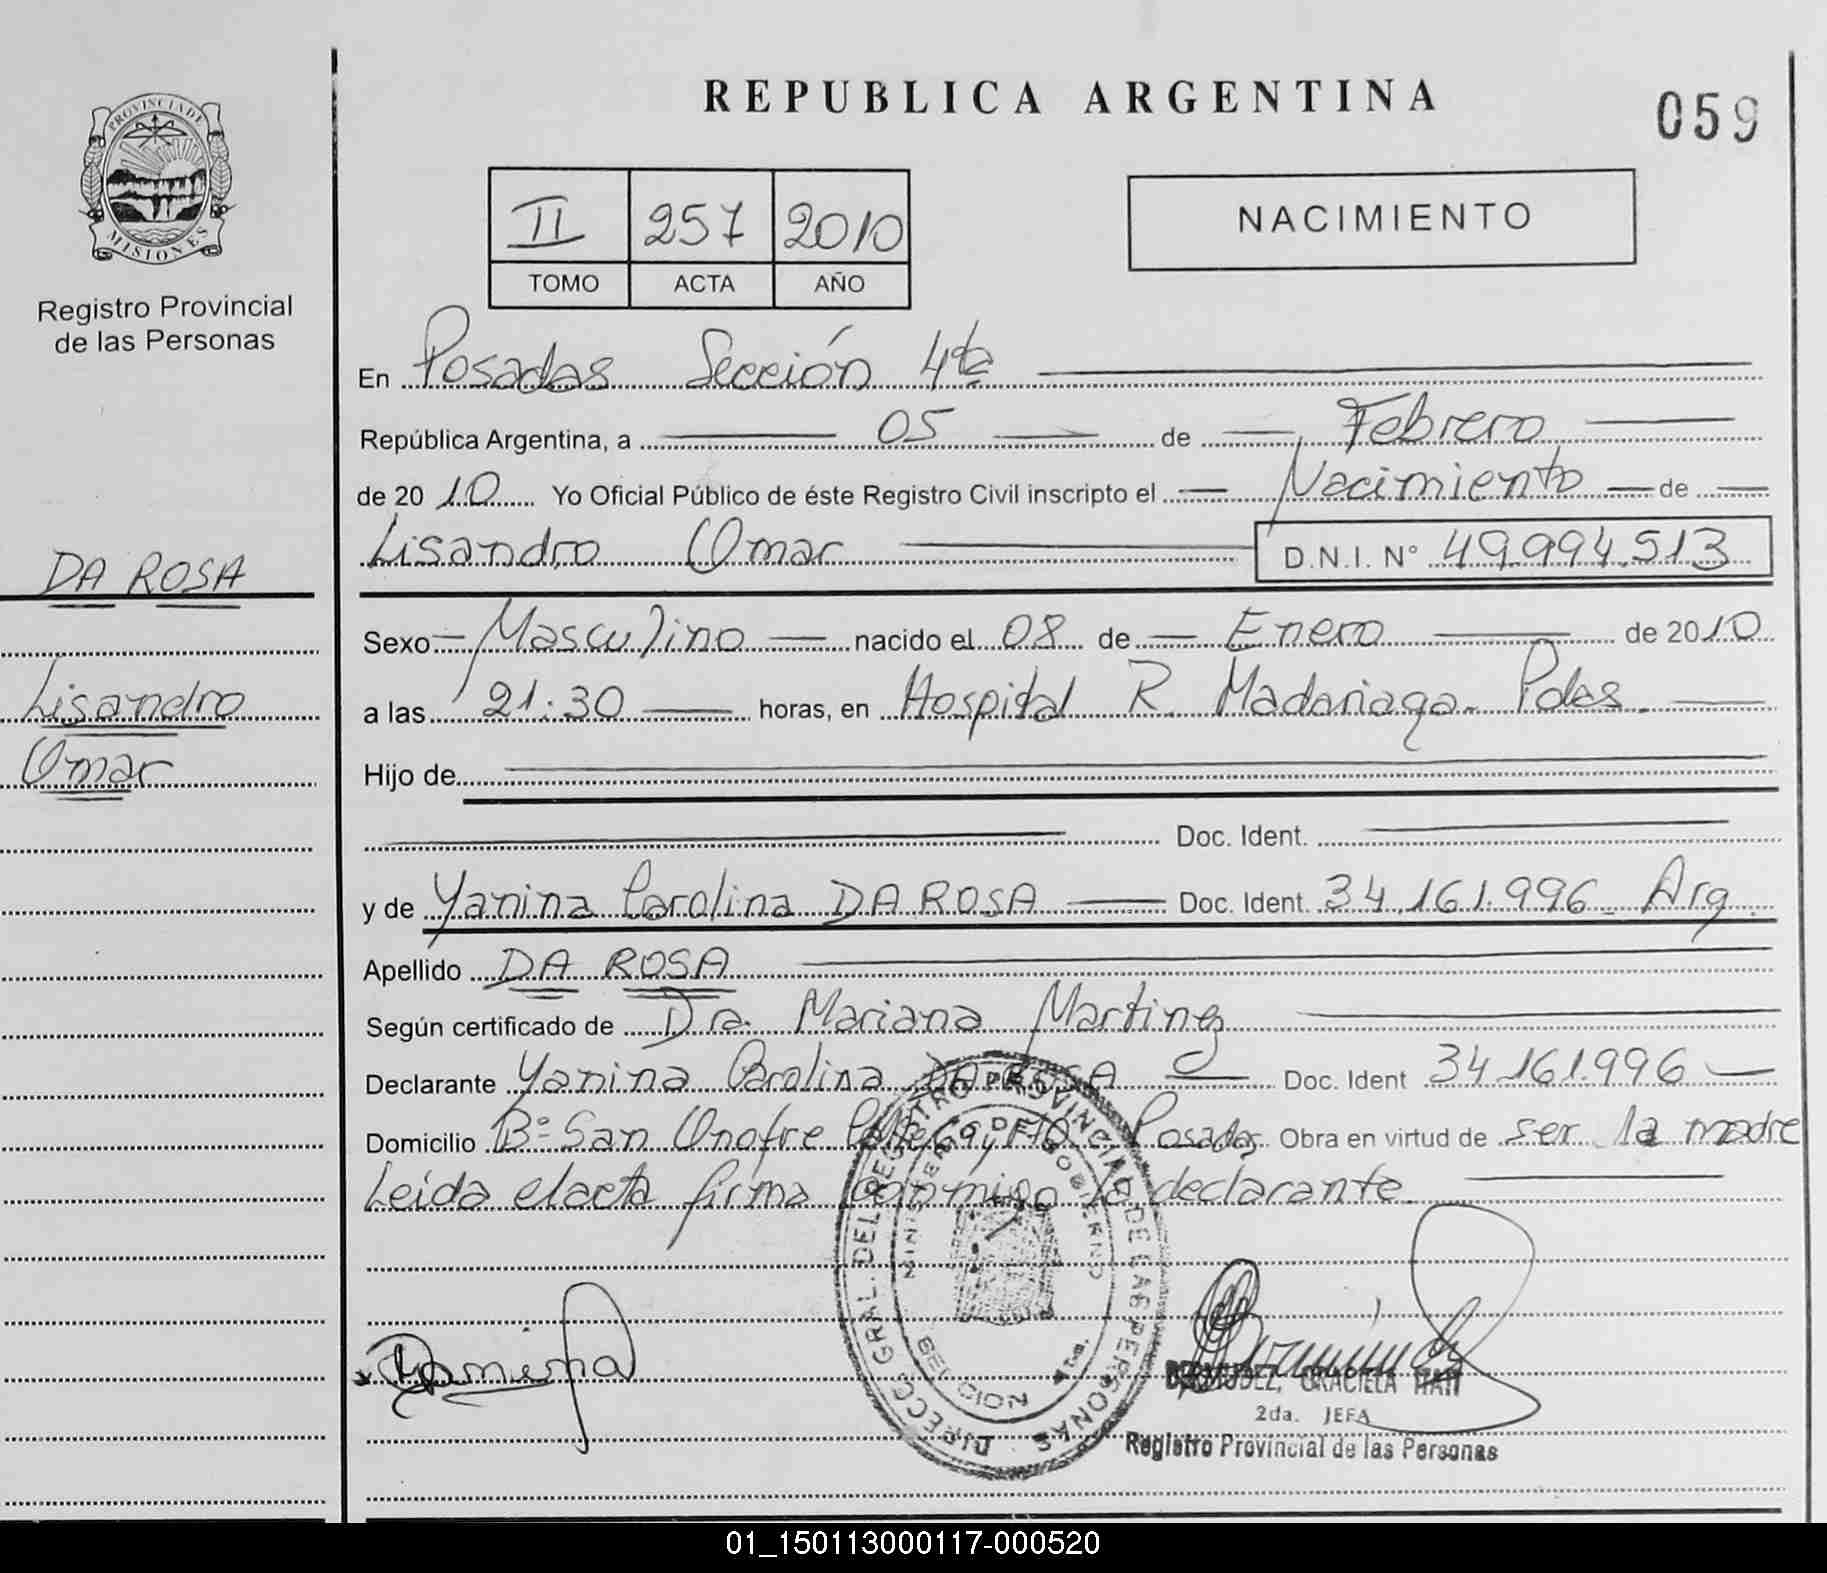 REPUBLICA ARGENTINA
059
PROVINCIA DE
MISIONES
Registro Provincial
de las Personas
II 257 2010
TOMO ACTA AÑO
NACIMIENTO
En Posadas Sección 4ta
República Argentina, a 05 de Febrero
de 20 10 Yo Oficial Público de éste Registro Civil inscripto el Nacimiento de
Lisandro Omar D.N.I. N° 49.994.513
DA ROSA
Lisandro
Omar
Sexo Masculino nacido el 08 de Enero de 2010
a las 21:30 horas, en Hospital R. Madariaga. Pdas.
Hijo de
Doc. Ident.
y de Yanina Carolina DA ROSA Doc. Ident. 34.161.996. Arg.
Apellido DA ROSA
Según certificado de Dra. Mariana Martinez
Declarante Yanina Carolina DA ROSA Doc. Ident 34.161.996
Domicilio B° San Onofre Posadas Obra en virtud de ser la madre
Leída el acta firma conmigo la declarante.
DIRECC. GRAL. DEL REGISTRO PROVINCIAL DE LAS PERSONAS
MINISTERIO DE GOBIERNO
Yanina
BERMUDEZ, GRACIELA ITATI
2da. JEFA
Registro Provincial de las Personas
01_150113000117-000520